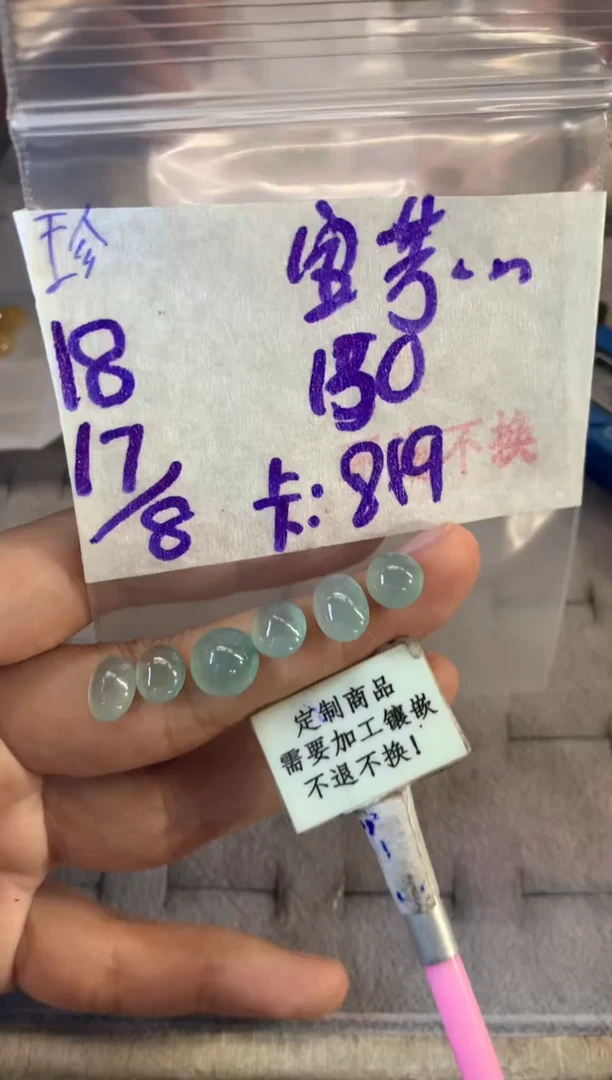 珍
18
17/8
130
卡:819
不换
定制商品
需要加工镶嵌
不退不换!